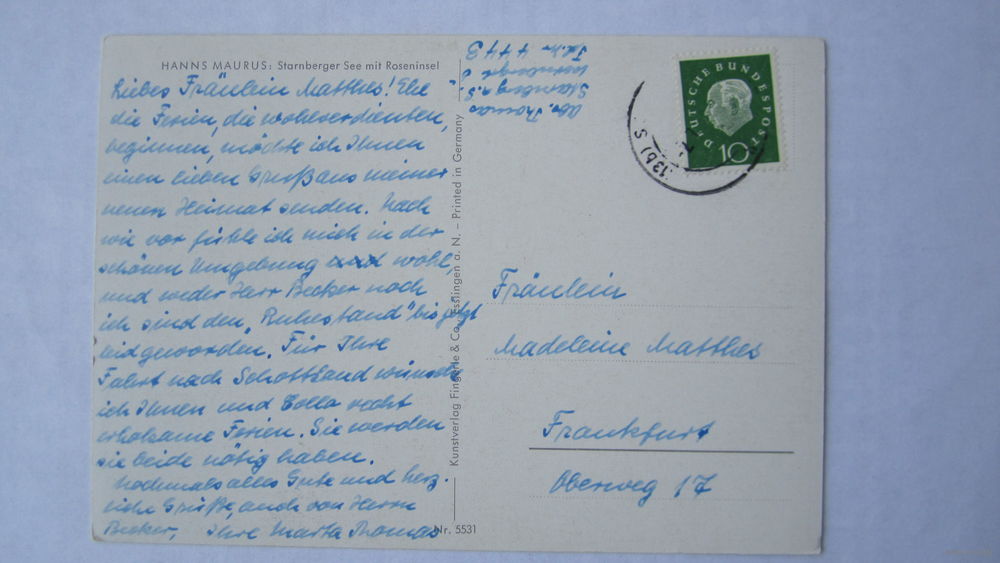 HANNS MAURUS: Starnberger See mit Roseninsel
Liebes Fräulein Matthes! Ehe
die Ferien, die wohlverdienten,
beginnen, möchte ich Ihnen
einen lieben Gruß aus meiner
neuen Heimat senden. Nach
wie vor fühle ich mich in der
schönen Umgebung wohl,
und weder Herr Becker noch
ich sind den "Ruhestand" bis jetzt
leid geworden. Für Ihre
Fahrt nach Schottland wünsche
ich Ihnen und recht
erholsame Ferien. Sie werden
sie beide nötig haben.
Nochmals alles Gute und herz-
liche Grüße, auch von Herrn
Becker, Ihre Marta Thomas
Abs. Thomas
Starnberg a. S.
Tel. Nr. 4443
Kunstverlag Fingerle & Co., Esslingen a. N. – Printed in Germany
Nr. 5531
DEUTSCHE BUNDESPOST
10
(13b) S
Fräulein
Madeleine Matthes
Frankfurt
Oberweg 17